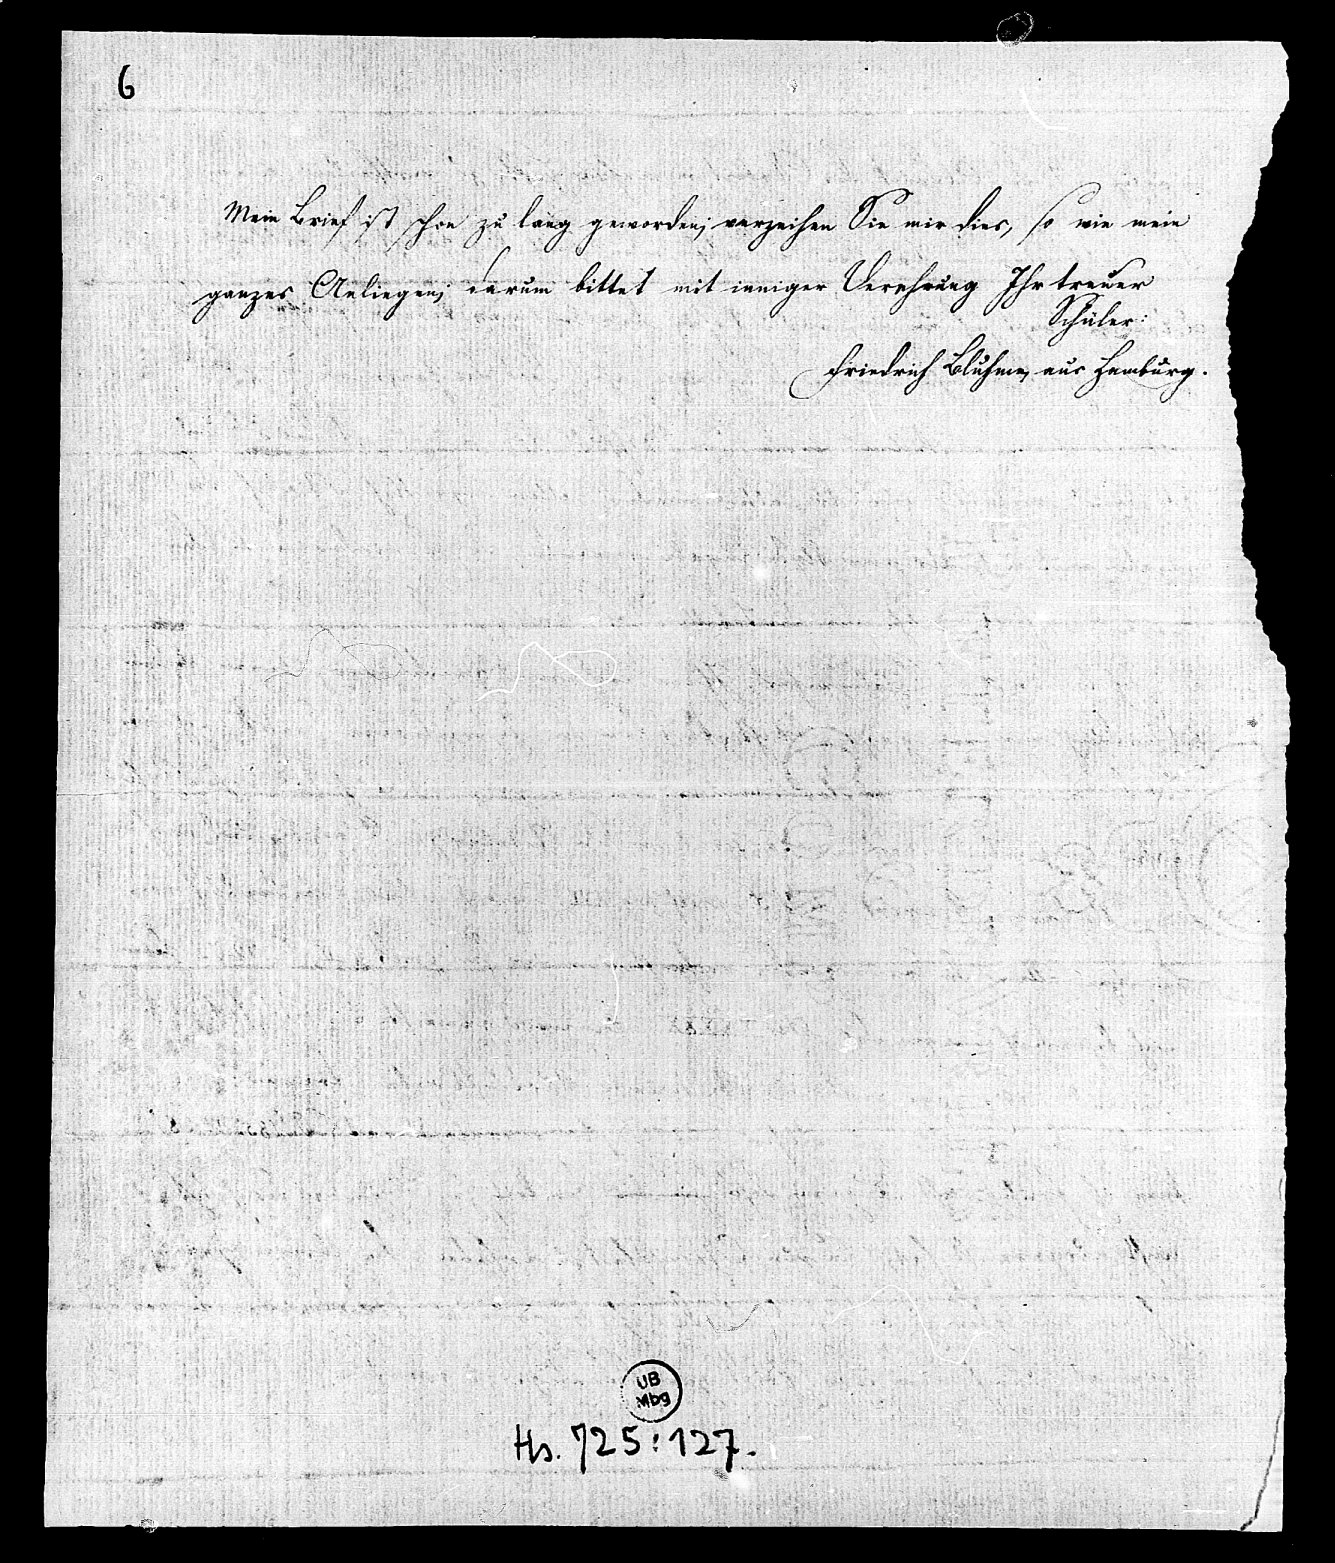 6
Mein Brief ist schon zu lang geworden; verzeihen Sie mir dies, so wie mein
ganzes Anliegen; darum bittet mit inniger Verehrung Ihr treuer
Schüler:
Friedrich Bluhme, aus Hamburg.
UB
Mbg
Hs. 725:127.